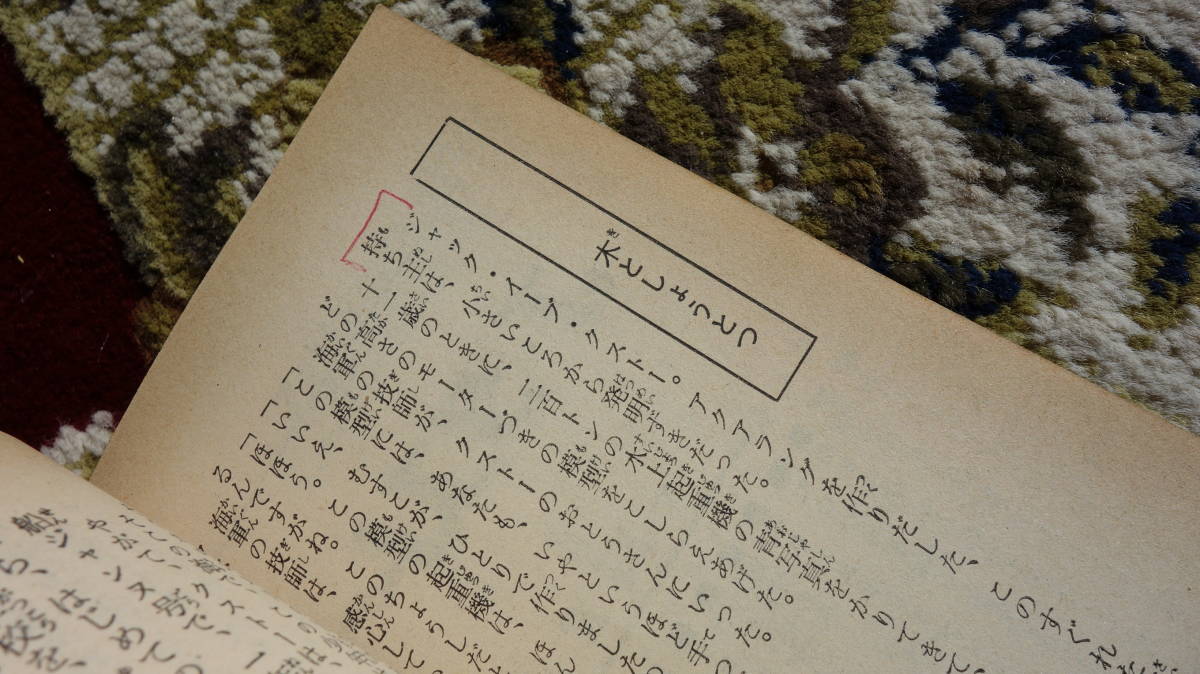 木としょうとつ
ジャック・イーブ・クストー。アクアラングを作りだした、このすぐれた
持ち主は、小さいころから発明ずきだった。
十一歳のときに、二百トンの水上起重機の青写真をかりてきて、
どの高さのモーターつきの模型をこしらえあげた。
海軍の技師が、クストーのおとうさんにいった。
「この模型には、あなたも、いやというほど手つ
「いいえ、むすこが、ひとりで作りましたっ
「ほほう。この模型の起重機は、ほん
るんですがね。このちょうしだと
海軍の技師は、感心して
船
ジャンスト
号で、
やがて、ク
ら、はじめて
校を、